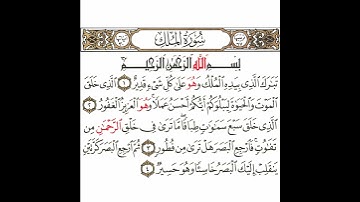 سُورَةُ المُلْكِ
بِسْمِ اللَّهِ الرَّحْمَٰنِ الرَّحِيمِ
تَبَارَكَ الَّذِي بِيَدِهِ الْمُلْكُ وَهُوَ عَلَىٰ كُلِّ شَيْءٍ قَدِيرٌ ١ الَّذِي خَلَقَ
الْمَوْتَ وَالْحَيَوٰةَ لِيَبْلُوَكُمْ أَيُّكُمْ أَحْسَنُ عَمَلًا وَهُوَ الْعَزِيزُ الْغَفُورُ ٢
الَّذِي خَلَقَ سَبْعَ سَمَٰوَٰتٍ طِبَاقًا مَّا تَرَىٰ فِي خَلْقِ الرَّحْمَٰنِ مِن
تَفَٰوُتٍ فَارْجِعِ الْبَصَرَ هَلْ تَرَىٰ مِن فُطُورٍ ٣ ثُمَّ ارْجِعِ الْبَصَرَ كَرَّتَيْنِ
يَنقَلِبْ إِلَيْكَ الْبَصَرُ خَاسِئًا وَهُوَ حَسِيرٌ ٤